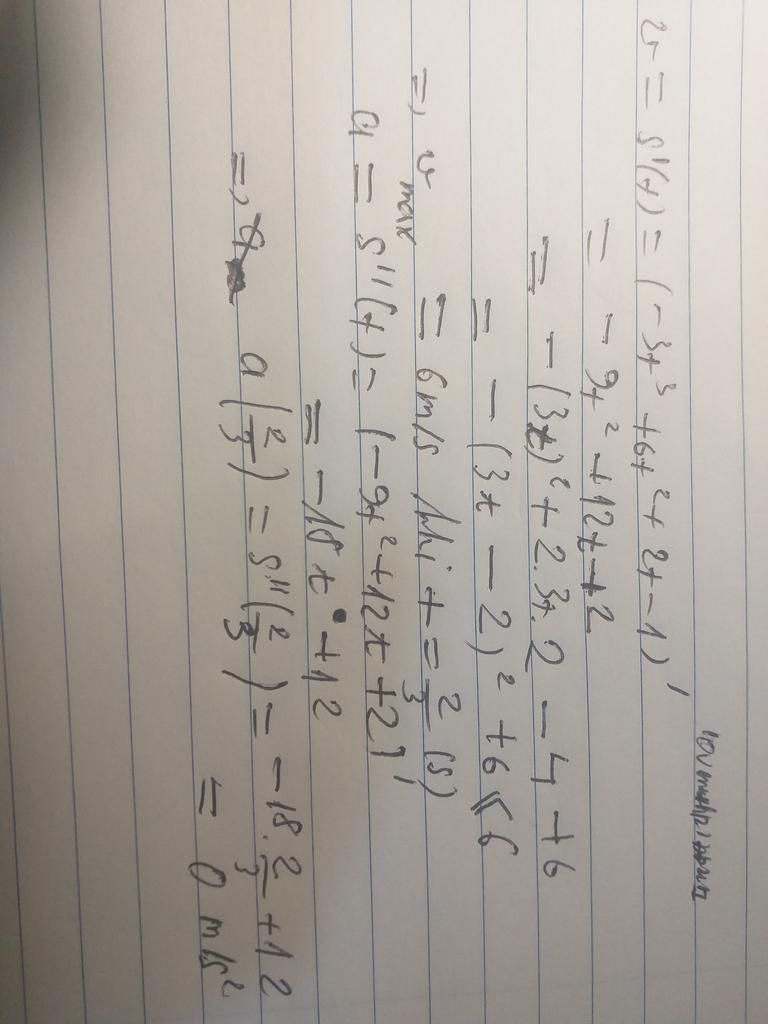 v = S'(t) = (-3t³ + 6t² + 2t - 1)'
= -9t² + 12t + 2
= -(3t)² + 2.3t.2 - 4 + 6
= -(3t - 2)² + 6 ≤ 6
=, v max = 6 m/s khi t = 2/3 (s)
a = S''(t) = (-9t² + 12t + 2)'
= -18t + 12
=, a(2/3) = S''(2/3) = -18.2/3 + 12
= 0 m/s²